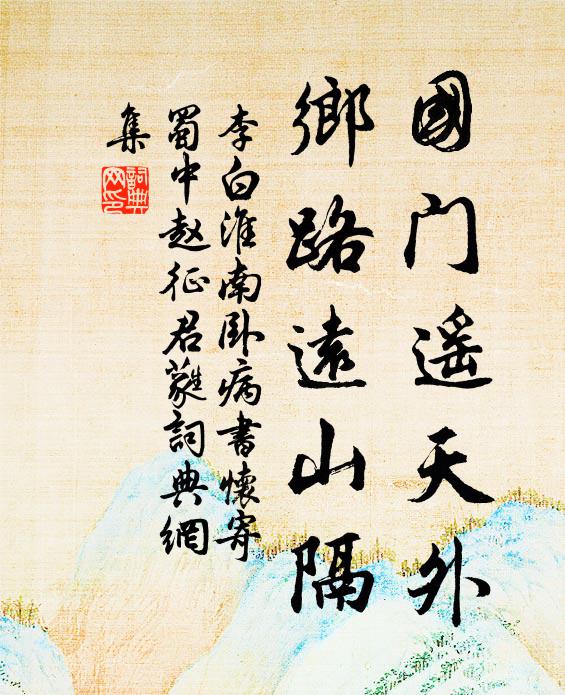 國门遥天外
鄉路遠山隔
李白淮南卧病書懷寄
蜀中赵征君蕤詞典網
集
詞典
网印